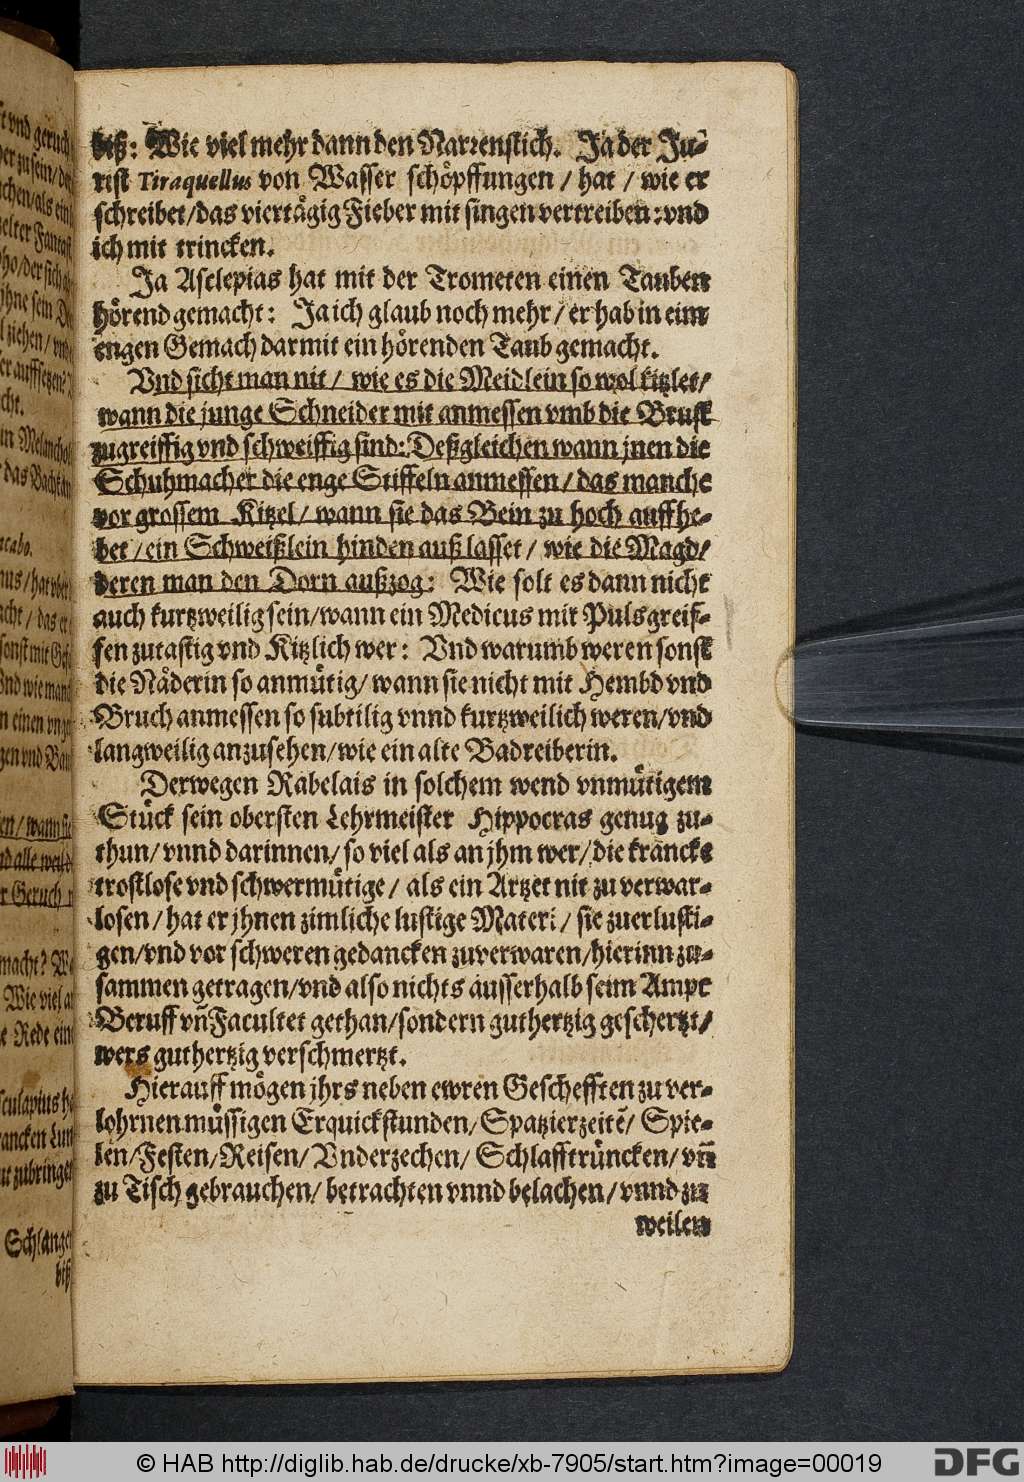 biß: Wie viel mehr dann den Narrenstich. Ja der Ju-
rist Tiraquellus von Wasser schöpffungen / hat / wie er
schreibet/das viertägig Fieber mit singen vertreiben: vnd
ich mit trincken.
Ja Asclepias hat mit der Trometen einen Tauben
hörend gemacht: Ja ich glaub noch mehr / er hab in eim
engen Gemach darmit ein hörenden Taub gemacht.
Vnd sicht man nit / wie es die Meidlein so wol kitzlet/
wann die junge Schneider mit anmessen vmb die Brust
zugreiffig vnd schweiffig sind: Deßgleichen wann jnen die
Schuhmacher die enge Stiffeln anmessen / das manche
vor grossem Kitzel / wann sie das Bein zu hoch auffhe-
bet / ein Schweißlein hinden auß lasset / wie die Magd/
deren man den Dorn außzog: Wie solt es dann nicht
auch kurtzweilig sein/wann ein Medicus mit Pulsgreif-
fen zutastig vnd Kitzlich wer: Vnd warumb weren sonst
die Näderin so anmütig/ wann sie nicht mit Hembd vnd
Bruch anmessen so subtilig vnnd kurtzweilich weren/vnd
langweilig anzusehen/wie ein alte Badreiberin.
Derwegen Rabelais in solchem wend vnmütigem
Stück sein obersten Lehrmeister Hippocras genug zu-
thun/ vnnd darinnen/ so viel als an jhm wer/ die krancke
trostlose vnd schwermütige / als ein Artzet nit zu verwar-
losen / hat er jhnen zimliche lustige Materi / sie zuerlusti-
gen/vnd vor schweren gedancken zuverwaren/hierinn zu-
sammen getragen/vnd also nichts ausserhalb seim Ampt
Beruff vñ Facultet gethan/sondern guthertzig geschertzt/
wers guthertzig verschmertzt.
Hierauff mögen jhrs neben ewren Geschefften zu ver-
lohrnen müssigen Erquickstunden/ Spatzierzeitē/ Spie-
len/Festen/Reisen/ Vnderzechen/ Schlafftrüncken/ vñ
zu Tisch gebrauchen/ betrachten vnnd belachen / vnnd zu
weilen
© HAB http://diglib.hab.de/drucke/xb-7905/start.htm?image=00019
DFG